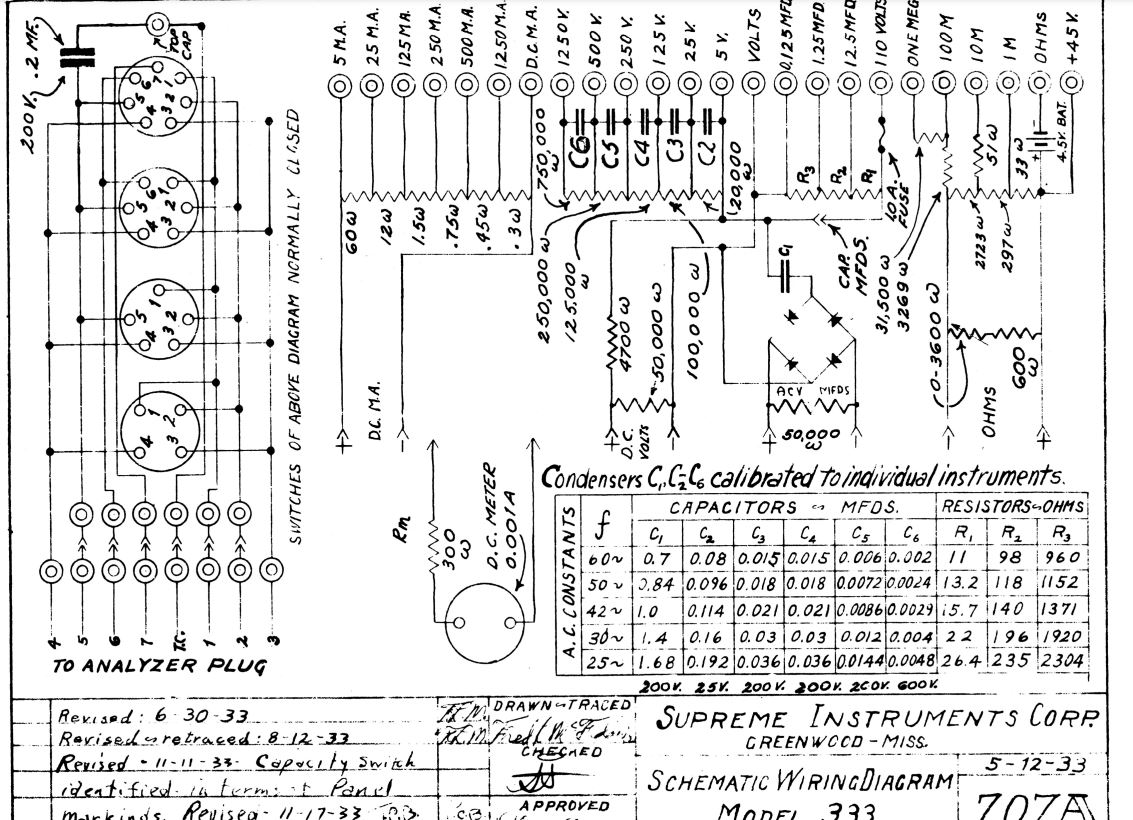 .2 MF.
200 V.
TOP CAP
7
6 1
5 2
4 3
6 1
5 2
4 3
1
5 2
4 3
1
2
4 3
SWITCHES OF ABOVE DIAGRAM NORMALLY CLOSED
4 5 6 7 T.C. 1 2 3
TO ANALYZER PLUG
5 M.A.
25 M.A.
125 M.A.
250 M.A.
500 M.A.
1250 M.A.
D.C. M.A.
1250 V.
500 V.
250 V.
125 V.
25 V.
5 V.
VOLTS
0.125 MFD
1.25 MFD
12.5 MFD
110 VOLTS
ONE MEG
100 M
10 M
1 M
OHMS
+45 V.
750,000 ω
C6 C5 C4 C3 C2
20,000 ω
R3 R2 R1
10 A. FUSE
51 ω
33 ω
4.5 V. BAT.
+
60 ω
12 ω
1.5 ω
.75 ω
.45 ω
.3 ω
250,000 ω
125,000 ω
4700 ω
50,000 ω
100,000 ω
C1
CAP. MFDS.
31,500 ω
3269 ω
2723 ω
297 ω
0-3600 ω
600 ω
ACV MFDS
50,000 ω
+ D.C. M.A. −
+ D.C. VOLTS −
+ −
− OHMS +
Rm
300 ω
D.C. METER
0.001A
Condensers C1, C2-C6 calibrated to individual instruments.
A.C. CONSTANTS
f CAPACITORS ∽ MFDS. RESISTORS∽OHMS
C1 C2 C3 C4 C5 C6 R1 R2 R3
60~ 0.7 0.08 0.015 0.015 0.006 0.002 11 98 960
50~ 0.84 0.096 0.018 0.018 0.0072 0.0024 13.2 118 1152
42~ 1.0 0.114 0.021 0.021 0.0086 0.0029 15.7 140 1371
30~ 1.4 0.16 0.03 0.03 0.012 0.004 22 196 1920
25~ 1.68 0.192 0.036 0.036 0.0144 0.0048 26.4 235 2304
200V. 25V. 200V. 200V. 200V. 600V.
Revised: 6-30-33
Revised ∽ retraced: 8-12-33
Revised - 11-11-33- Capacity Switch
identified in terms of Panel
markings. Revised- 11-17-33
DRAWN∽TRACED
CHECKED
APPROVED
SUPREME INSTRUMENTS CORP.
GREENWOOD-MISS.
SCHEMATIC WIRING DIAGRAM
MODEL 333
5-12-33
707A